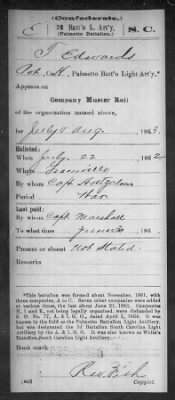 (Confederate.)
E 3 Batt'n L. Art'y. S. C.
(Palmetto Batt'n.)
T Edwards
Co. K, Palmetto Batt'n Light Art'y.*
Appears on
Company Muster Roll
of the organization named above,
for July & Aug, 1863.
Enlisted:
When July 22, 186
Where Greenville
By whom Capt
Period War
Last paid:
By whom Capt Marshall
To what time June 30, 186 .
Present or absent Not Stated
Remarks:
*This battalion was formed about November, 1861, with
three companies, A to C. Seven other companies were added
at various times, the last about June 21, 1862. Companies
H, I and K, not being legally organized, were disbanded by
S. O. No. 77, A. & I. G. O., dated April 2, 1864. It was also
known in the field as the Palmetto Battalion Light Artillery,
but was designated the 3d Battalion South Carolina Light
Artillery by the A. & I. G. O. It was also known as White's
Battalion, South Carolina Light Artillery.
Book mark:
(642)
Copyist.